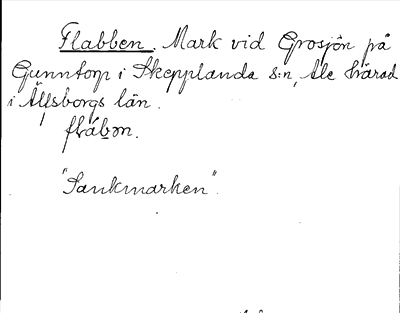 Flabben. Mark vid Grosjön på
Gunntorp i Skepplanda s:n, Ale härad
i Älfsborgs län.
flábən.
"Sankmarken".